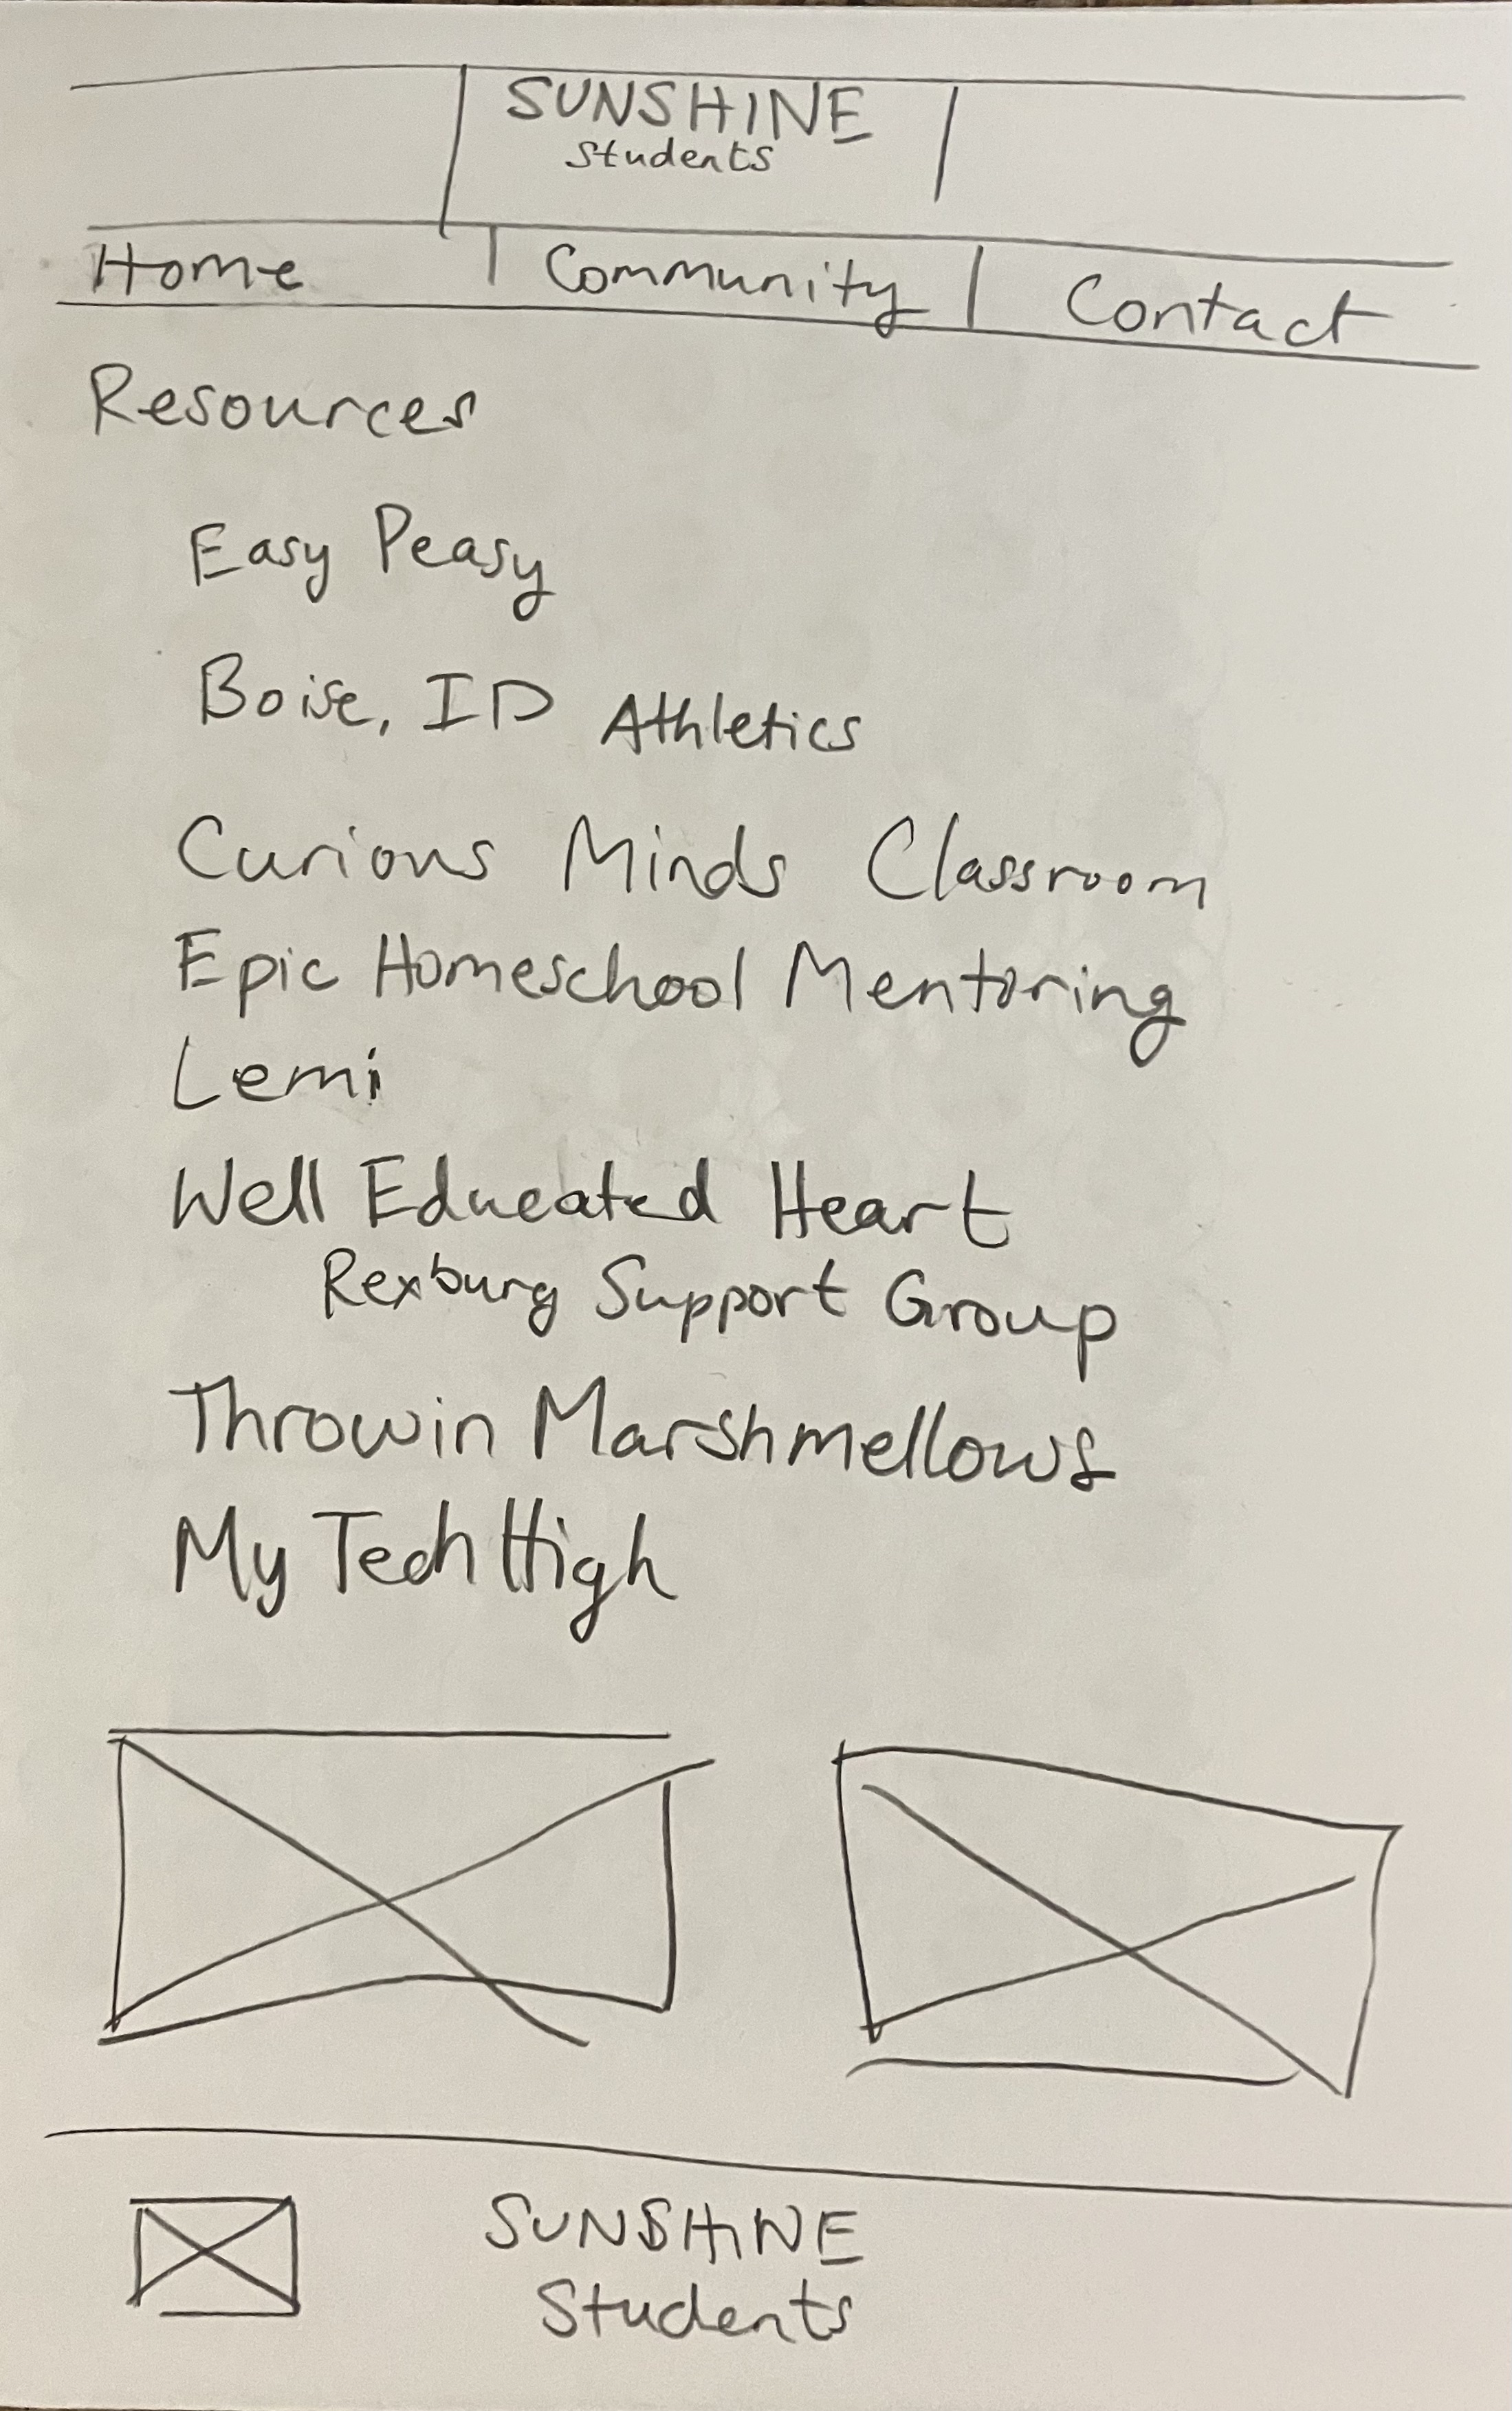 SUNSHINE
Students
Home Community Contact
Resources
Easy Peasy
Boise, ID Athletics
Curious Minds Classroom
Epic Homeschool Mentoring
Lemi
Well Educated Heart
Rexburg Support Group
Throwin Marshmellows
My Tech High
SUNSHINE
Students